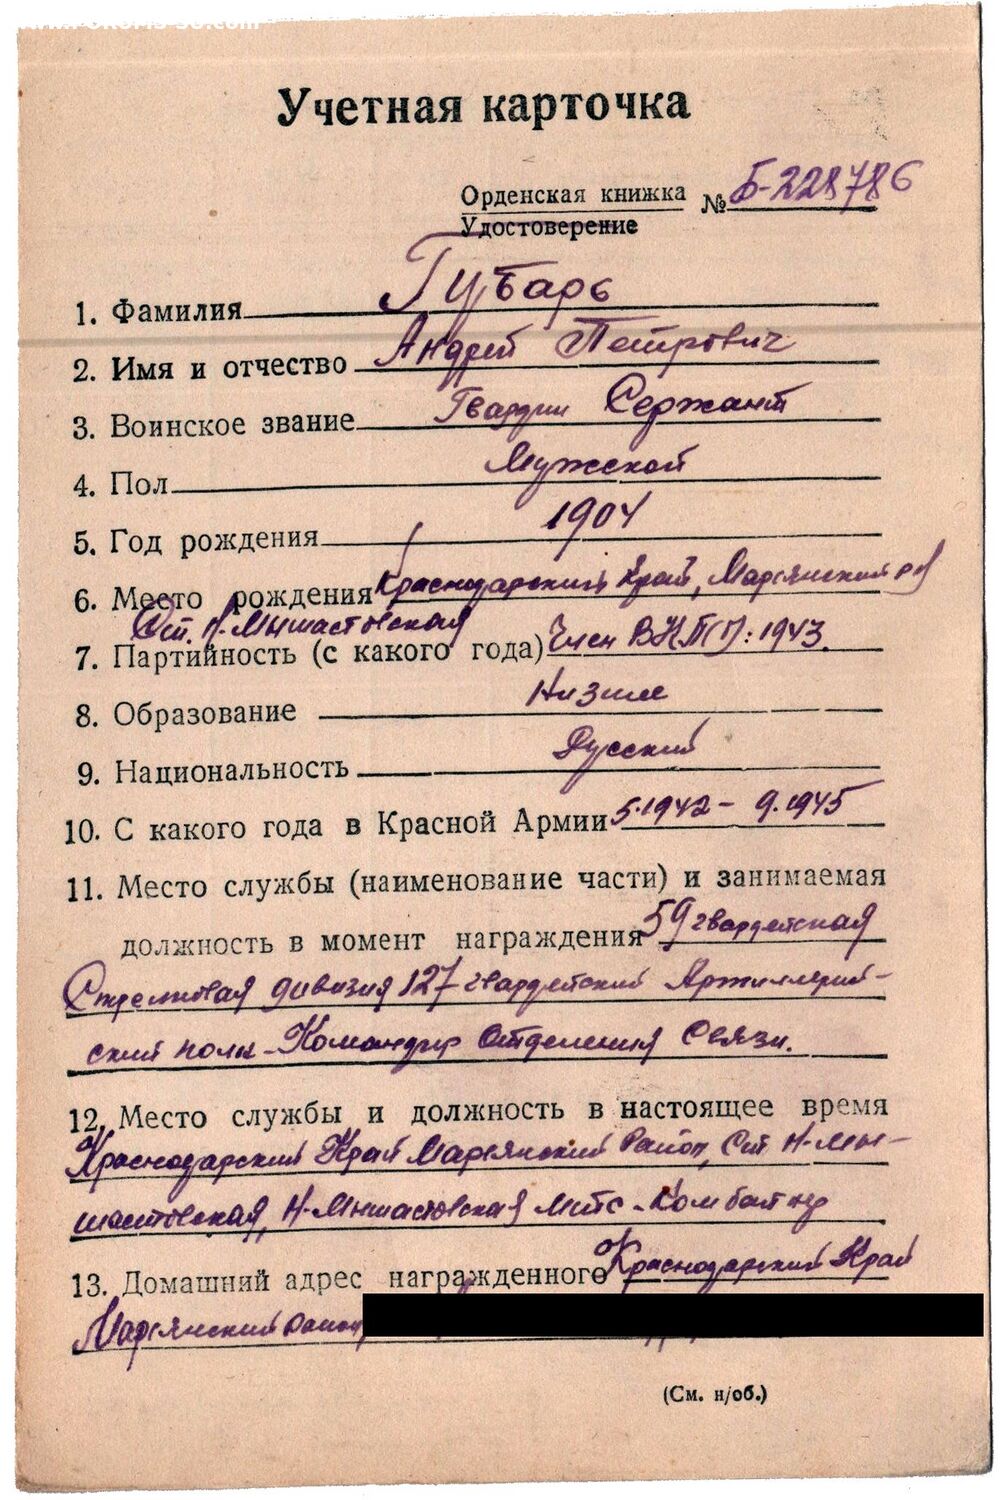 Учетная карточка
Орденская книжка № Б-228786
Удостоверение
1. Фамилия Губарь
2. Имя и отчество Андрей Петрович
3. Воинское звание Гвардии Сержант
4. Пол Мужской
5. Год рождения 1904
6. Место рождения Краснодарский Край, Марьянский р-н
Ст. Н-Мышастовская
7. Партийность (с какого года) Член ВКП(б): 1943.
8. Образование Низшее
9. Национальность Русский
10. С какого года в Красной Армии 5.1942 - 9.1945
11. Место службы (наименование части) и занимаемая
должность в момент награждения 59 гвардейская
Стрелковая дивизия 127 гвардейский Артиллерий-
ский полк - Командир Отделения Связи.
12. Место службы и должность в настоящее время
Краснодарский Край Марьянский Район, Ст. Н-Мы-
шастовская, Н-Мышастовская МТС - Комбайнер
13. Домашний адрес награжденного Краснодарский Край
Марьянский Район,
(См. н/об.)